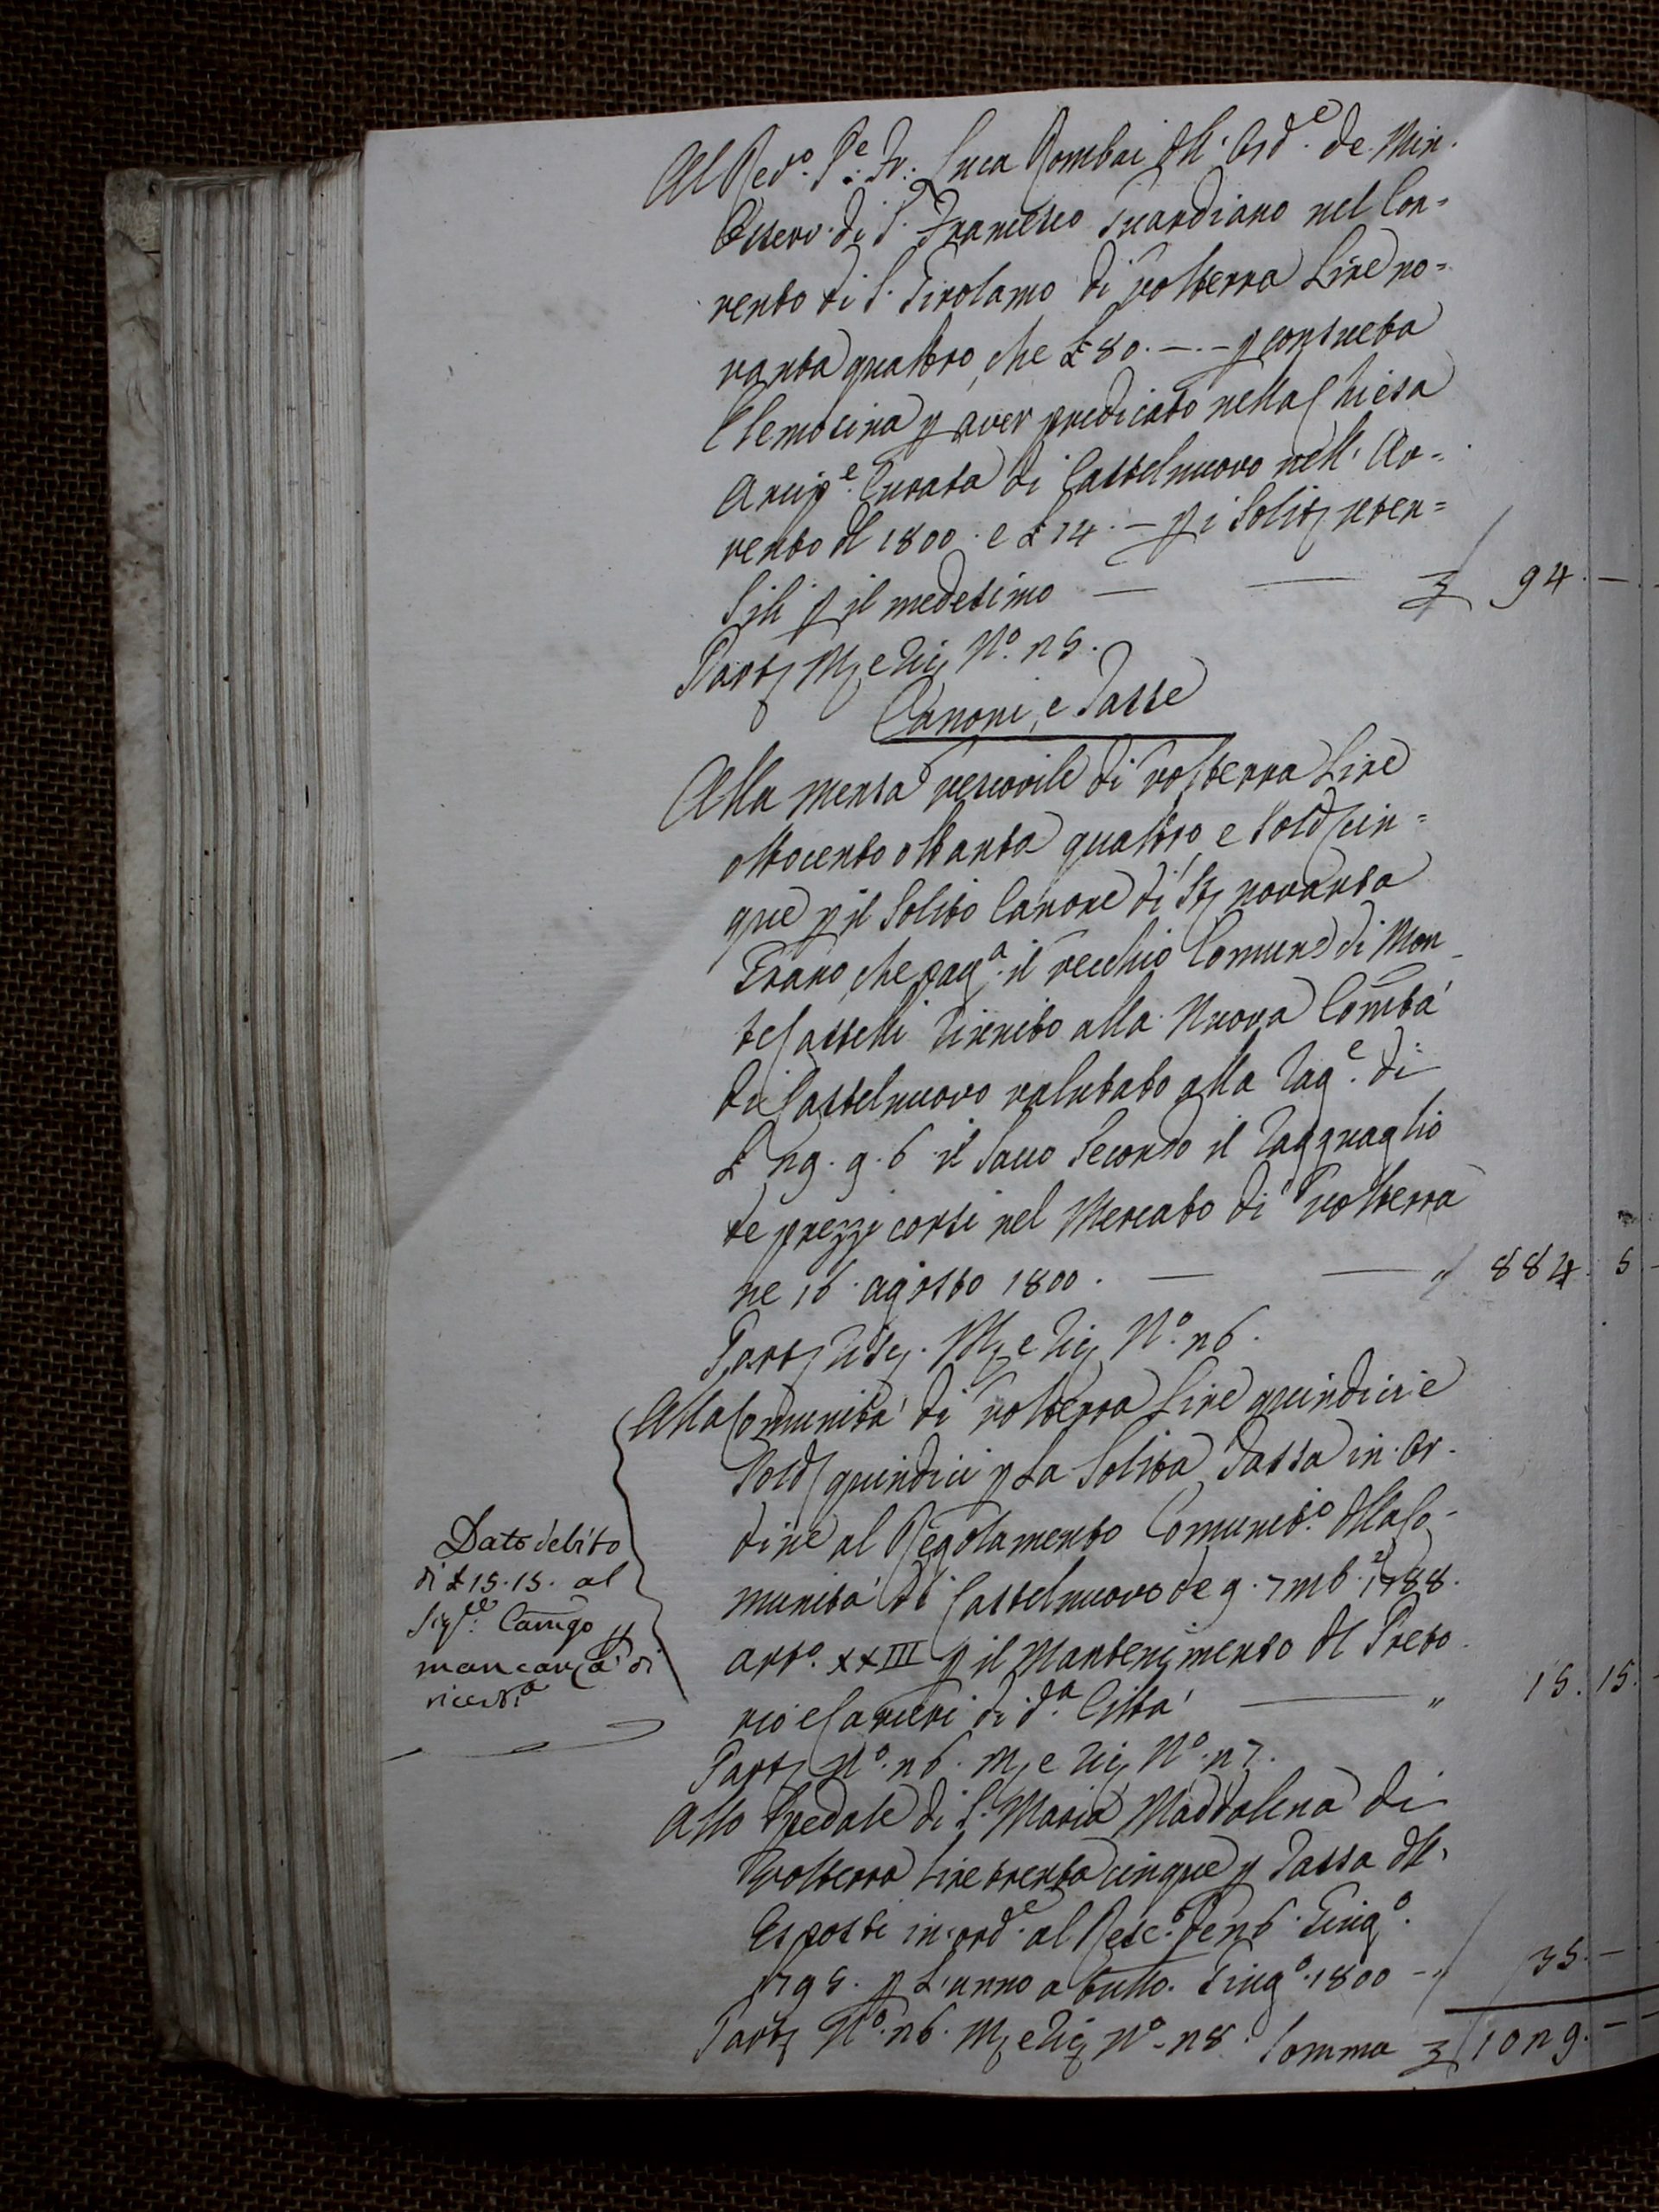 Al Red.o P.e Fr. Luca Rombai dell' Ord.e de Min.
Osserv. di S. Francesco Guardiano nel Con=
vento di S. Girolamo di Volterra Lire no=
vanta quattro, che £ 80. -. - p consueta
Elemosina p aver predicato nella Chiesa
Arcip.e Curata di Castelnuovo nell' Av=
vento del 1800. e £ 14. - p i soliti uten=
sili p il medesimo — — £ 94. —
Part M, e Ric, N.o 25.
Canoni, e Tasse
Alla mensa vescovile di Volterra Lire
ottocento ottanta quattro e Sold cin=
que p il Solito Canone di St novanta
Grano, che pag.a il vecchio Comune di Mon
te Castelli riunito alla Nuova Com̃tà
di Castelnuovo valutato alla Rag.e di
£ 29. 9. 6 il Sacco Secondo il Ragguaglio
de prezzi corsi nel Mercato di Volterra
ne 16. agosto 1800. — — " 884. 5 -
Part, M, e Ric, N.o 26.
Alla Comunità di Volterra Lire quindici e
Sold quindici p La Solita Tassa in or-
dine al Regolamento Comunit.o della Co-
munità di Castelnuovo de 9. 7mb.e 1788.
art.o XXIII p il Mantenimento del Preto
rio e Carceri di d.a Città — " 15. 15. -
Part, N.o 26. M, e Ric, N.o 27.
Dato debito
di £ 15. 15. al
Sig.re Cam̃go p
mancanza di
ricevut.a
Allo Spedale di S. Maria Maddalena di
Volterra Lire trenta cinque p Tassa dell'
Esposti in ord.e al Resc.o de 26. Giug.o
1795. p L'anno a tutto. Giug.o 1800 - " 35. —
Part, N.o 26. M, e Ric, N.o 28. Somma £ 1029. —